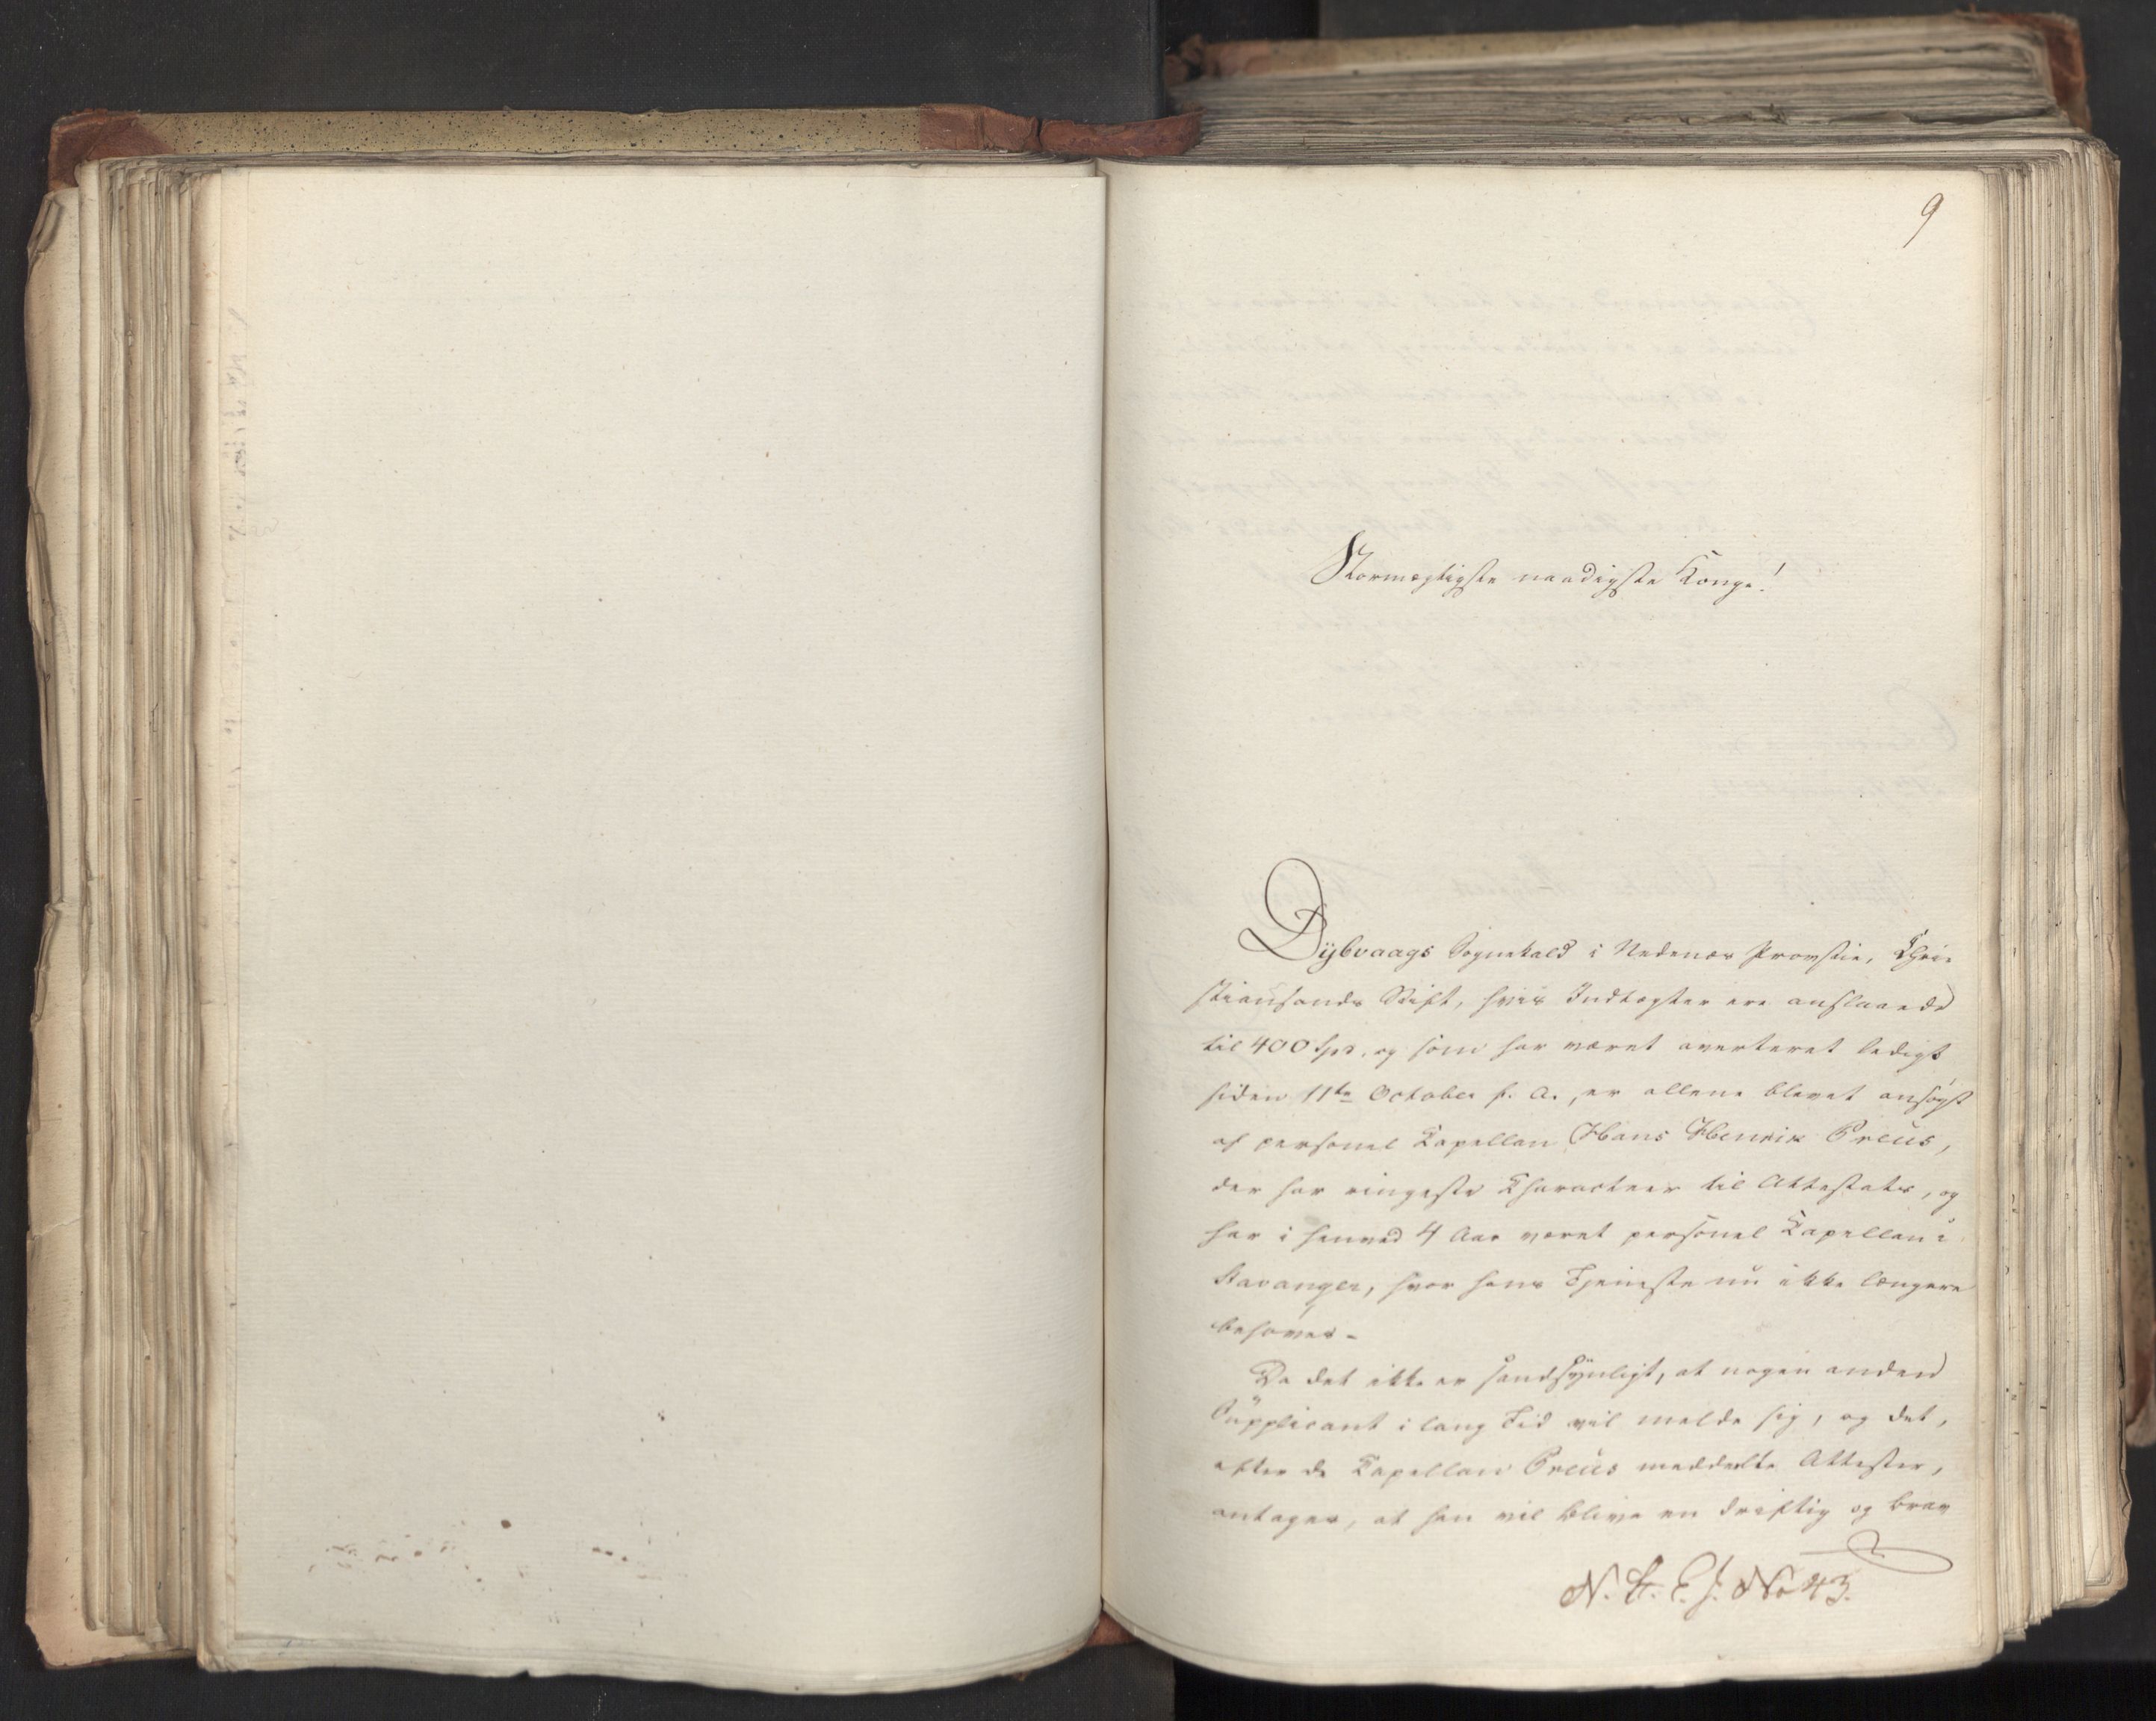 9
Stormægtigste naadigste Konge!
Dÿbvaags Sognekald i Nedenes Provstie, Chri-
stiansands Stift, hvis Indtægter ere anslaaede
til 400 Spd. og som har været averteret ledigt
siden 11te October f. A., er allene blevet ansøgt
af personel Capellan Hans Henrik Preüs,
der har ringeste Characteer til Attestats, og
har i henved 4 Aar været personel Capellan i
Stavanger, hvor hans Tjeneste nu ikke længere
behøves.
Da det ikke er sandsÿnligt, at nogen anden
Supplicant i lang Tid vil melde sig, og det,
efter de Capellan Preüs meddelte Attester,
antages, at han vil blive en driftig og brav
No 43.